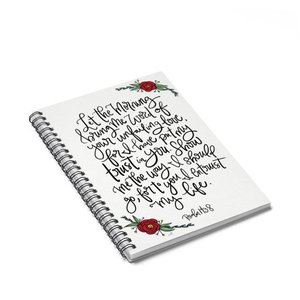 Let the Morning
bring me word of
your unfailing love,
for I have put my
trust in you. Show
me the way I should
go, for to you I entrust
my life.
Psalm 143:8